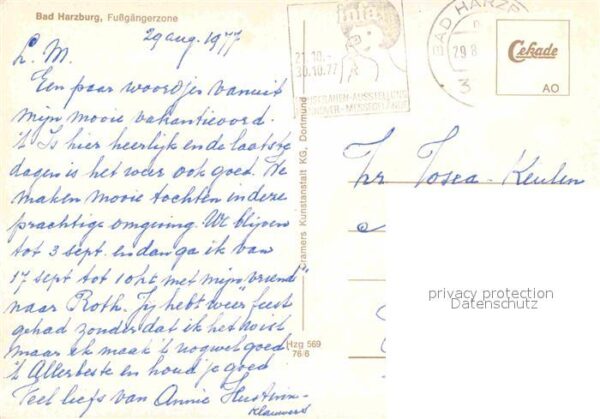 Bad Harzburg, Fußgängerzone
29 aug. 1977
L. M.
Een paar woordjes vanuit
mijn mooie vakantieoord.
't Is hier heerlijk en de laatste
dagen is het weer ook goed. We
maken mooie tochten in deze
prachtige omgeving. We blijven
tot 3 sept. en dan ga ik van
17 sept tot 1 okt met mijn vriend
naar Roth. Jij hebt weer feest
gehad zonder dat ik het wist
maar ik maak 't nog wel goed
't Allerbeste en houd je goed
Veel liefs van Annie
Klauwers
Cramers Kunstanstalt KG, Dortmund
Hzg 569
76/6
21.10.-
30.10.77
BAD HARZB
29.8
3
Cekade
AO
Hr Tosca - Keulen
privacy protection
Datenschutz